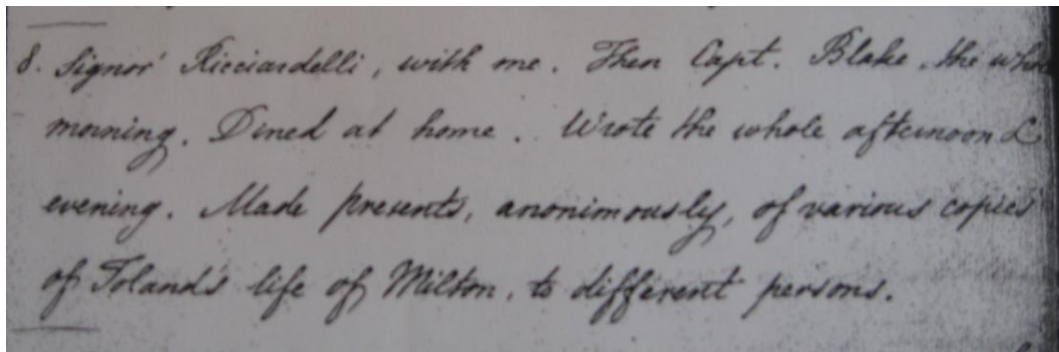 8. Signor' Ricciardelli, with me. Then Capt. Blake, the whole
morning. Dined at home. Wrote the whole afternoon &
evening. Made presents, anonimously, of various copies
of Toland's life of Milton, to different persons.